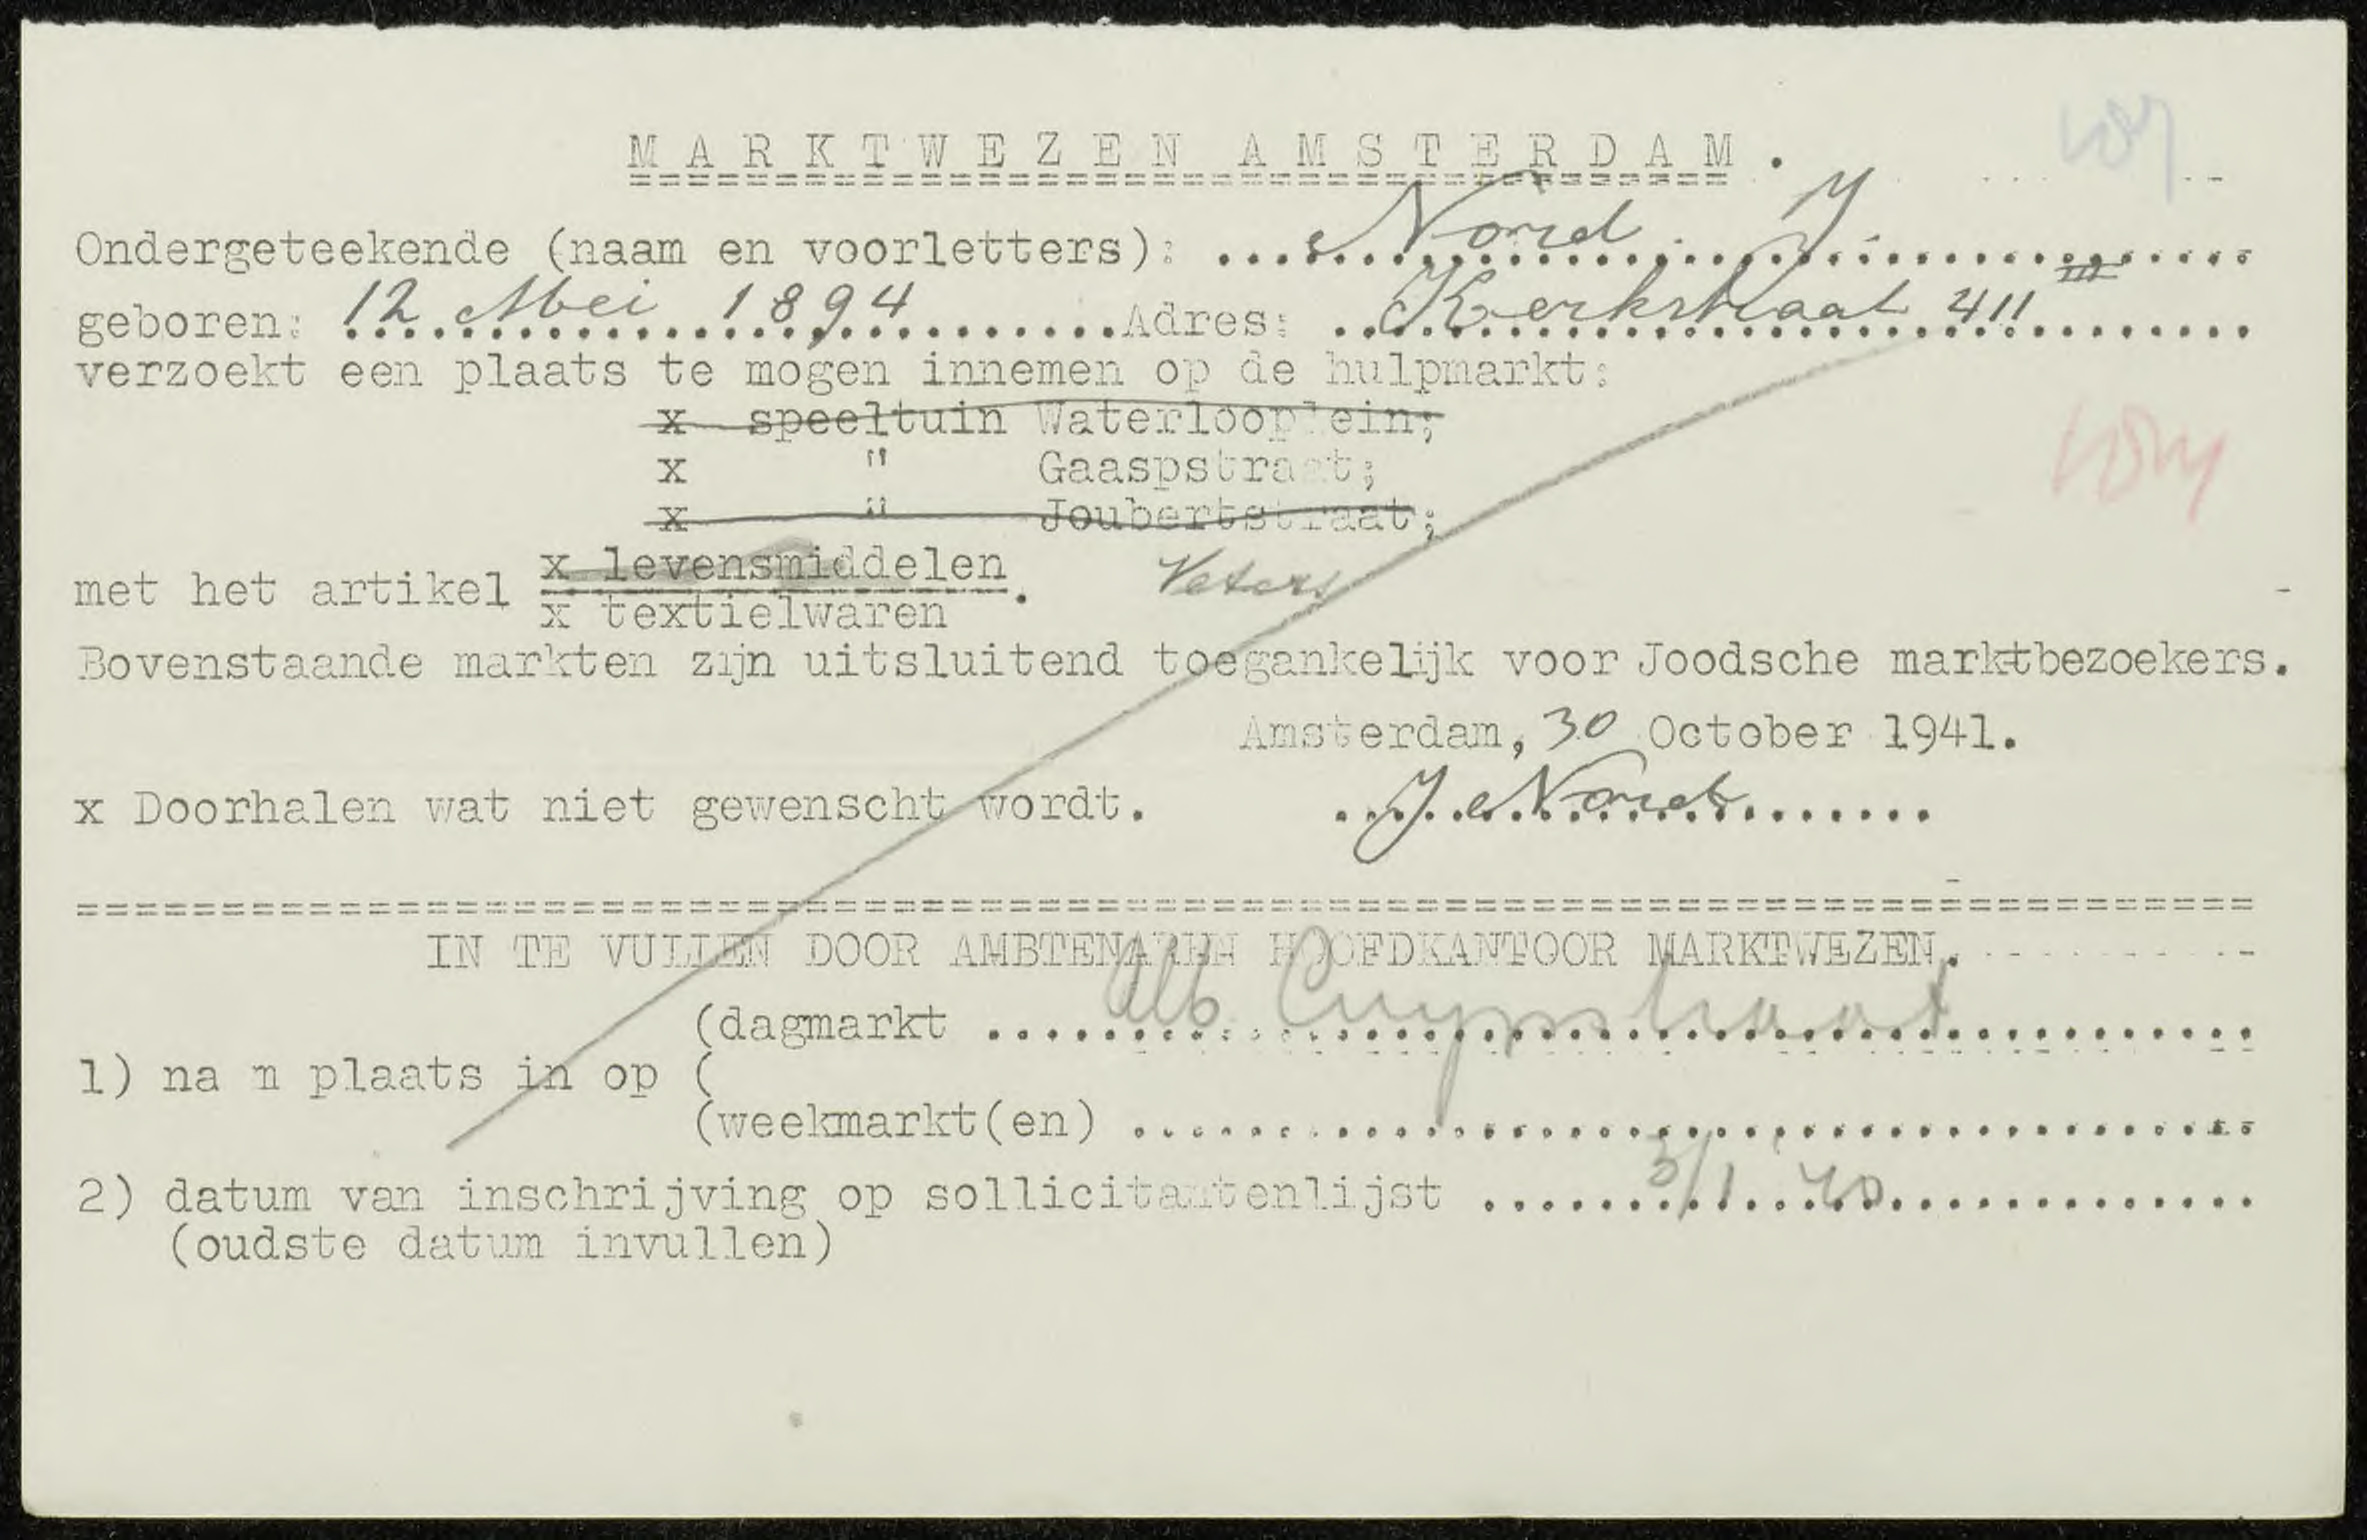 MARKTWEZEN AMSTERDAM.
Ondergeteekende (naam en voorletters): Nord J.
geboren: 12 Mei 1894 Adres: Kerkstraat 411 III
verzoekt een plaats te mogen innemen op de hulpmarkt:
x speeltuin Waterlooplein;
x " Gaaspstraat;
x " Joubertstraat;
met het artikel x levensmiddelen. Veters
x textielwaren
Bovenstaande markten zijn uitsluitend toegankelijk voor Joodsche marktbezoekers.
Amsterdam, 30 October 1941.
x Doorhalen wat niet gewenscht wordt. J. Nord
IN TE VULLEN DOOR AMBTENAREN HOOFDKANTOOR MARKTWEZEN.
(dagmarkt Alb Cuypstraat
1) na m plaats in op (
(weekmarkt(en)
2) datum van inschrijving op sollicitantenlijst 3/1 40
(oudste datum invullen)